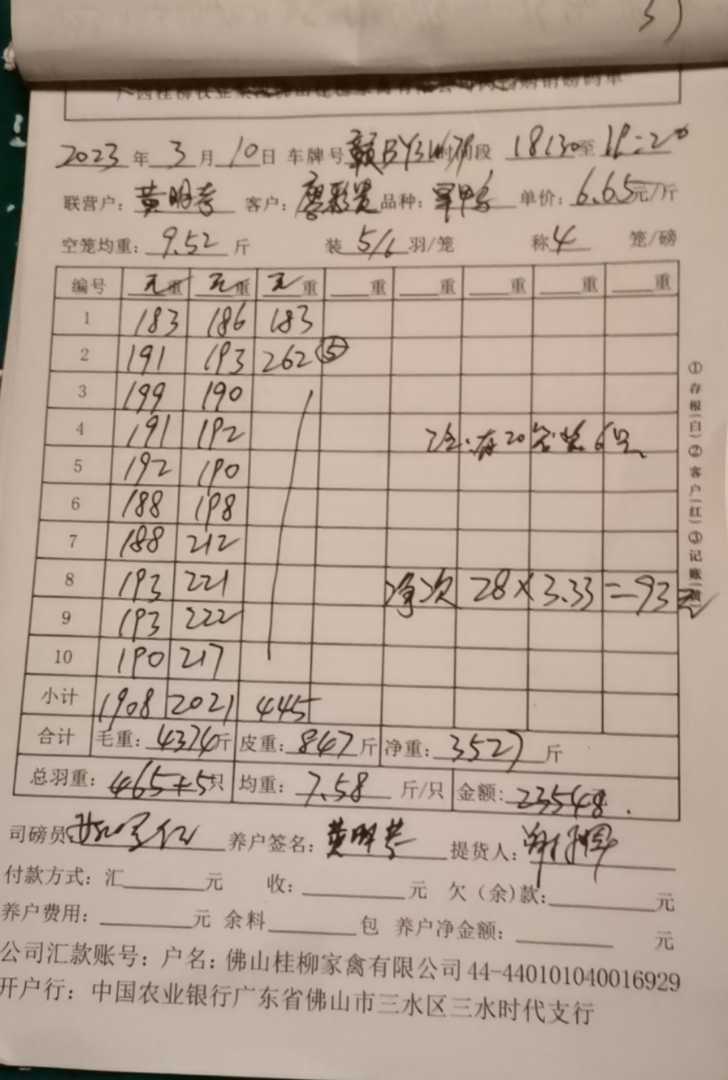 2023年3月10日 车牌号 赣BY3W79 时间段 18:30至19:20
联营户: 黄明 客户: 廖彩 品种: 单价: 6.65元/斤
空笼均重: 9.52斤 装5/6羽/笼 称4笼/磅
编号 毛重 毛重 毛重 重 重 重 重 重
1 183 186 183
2 191 193 262 ⑤
3 199 190
4 191 192 注:有20笼装6只
5 192 190
6 188 198
7 188 212
8 193 221 净次 28×3.33=93元
9 193 222
10 190 217
小计 1908 2021 445
合计 毛重: 4374斤 皮重: 847斤 净重: 3527斤
总羽重: 465+5只 均重: 7.58斤/只 金额: 23548.
司磅员 养户签名: 黄明 提货人: 谢
付款方式: 汇 元 收: 元 欠(余)款: 元
养户费用: 元 余料 包 养户净金额: 元
公司汇款账号: 户名: 佛山桂柳家禽有限公司 44-440101040016929
开户行: 中国农业银行广东省佛山市三水区三水时代支行
①存根(白)②客户(红)③记账